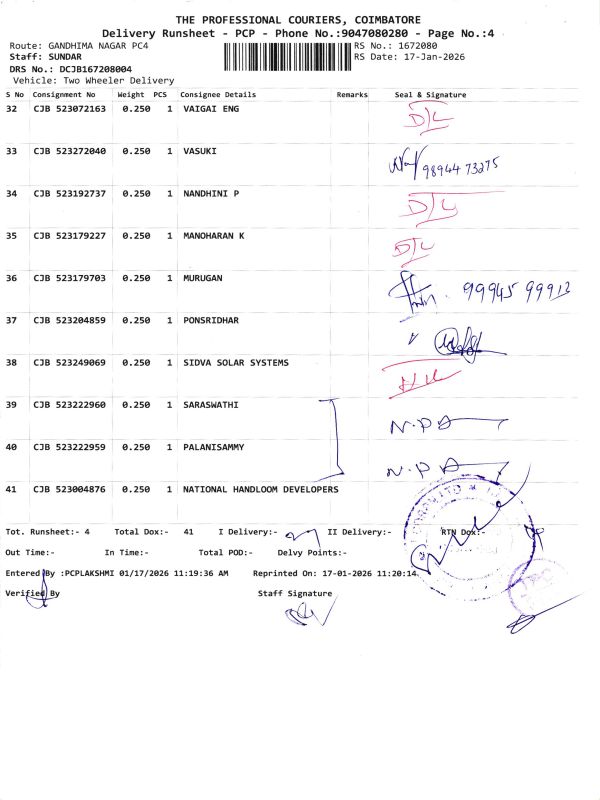 THE PROFESSIONAL COURIERS, COIMBATORE
Delivery Runsheet - PCP - Phone No.:9047080280 - Page No.:4
Route: GANDHIMA NAGAR PC4 RS No.: 1672080
Staff: SUNDAR RS Date: 17-Jan-2026
DRS No.: DCJB167208004
Vehicle: Two Wheeler Delivery
S No Consignment No Weight PCS Consignee Details Remarks Seal & Signature
32 CJB 523072163 0.250 1 VAIGAI ENG D/L
33 CJB 523272040 0.250 1 VASUKI 98944 73275
34 CJB 523192737 0.250 1 NANDHINI P D/L
35 CJB 523179227 0.250 1 MANOHARAN K D/L
36 CJB 523179703 0.250 1 MURUGAN 99945 99913
37 CJB 523204859 0.250 1 PONSRIDHAR
38 CJB 523249069 0.250 1 SIDVA SOLAR SYSTEMS
39 CJB 523222960 0.250 1 SARASWATHI N.P.A
40 CJB 523222959 0.250 1 PALANISAMMY N.P.A
41 CJB 523004876 0.250 1 NATIONAL HANDLOOM DEVELOPERS
Tot. Runsheet:- 4 Total Dox:- 41 I Delivery:- II Delivery:- RTN Dox:-
Out Time:- In Time:- Total POD:- Delvy Points:-
Entered By :PCPLAKSHMI 01/17/2026 11:19:36 AM Reprinted On: 17-01-2026 11:20:14
Verified By Staff Signature